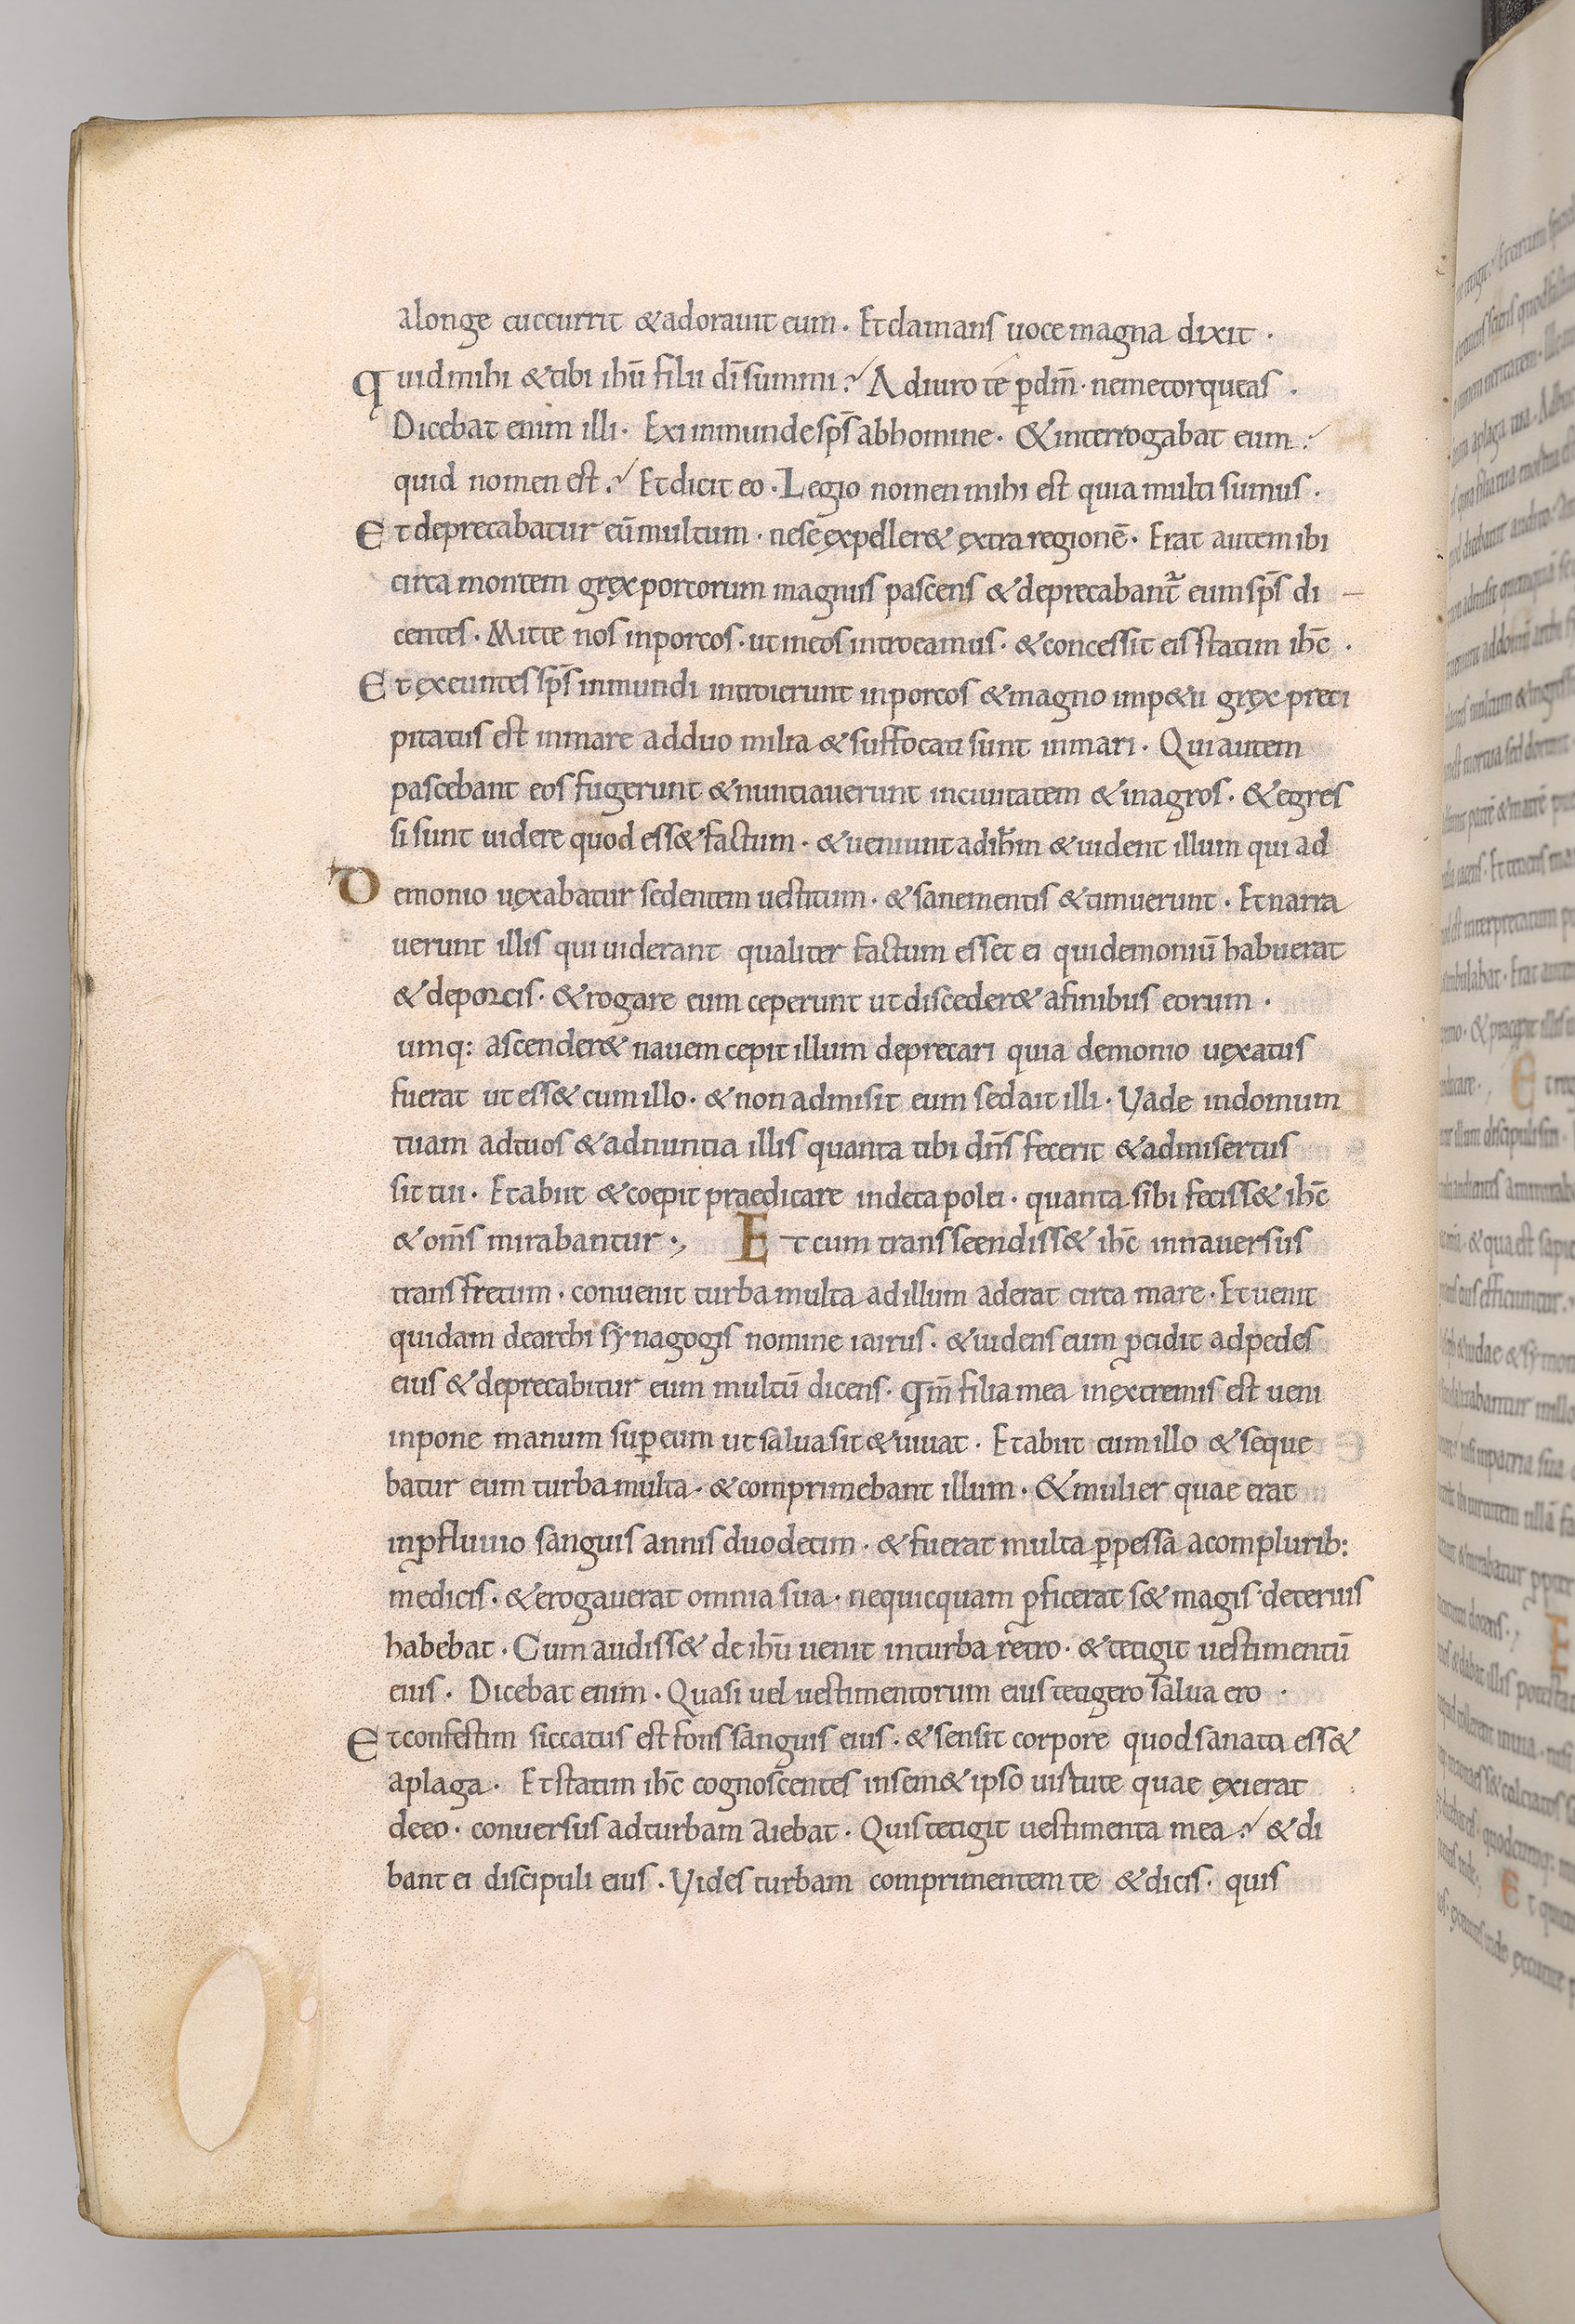 alonge cuccurrit & adorauit eum · Et clamans uoce magna dixit ·
Quid mihi & tibi ihū fili dī summi ? Adiuro te p̄ dm̄ · ne me torqueas ·
Dicebat enim illi · Exi inmunde sp̄s ab homine · & interrogabat eum ?
quid nomen est ? Et dicit eo · Legio nomen mihi est quia multi sumus ·
Et deprecabatur eū multum · ne se ęxpeller& ęxtra regionē · Erat autem ibi
circa montem gręx porcorum magnus pascens & deprecabant᷑ eum sp̄s di
centes · Mitte nos in porcos · ut in eos introeamus · & concessit eis statim ih̄c ·
Et ęxeuntes sp̄s inmundi introierunt in porcos & magno imp&u gręx preci
pitatus est in mare ad duo milia & suffocati sunt in mari · Qui autem
pascebant eos fugerunt & nuntiauerunt in ciuitatem & in agros · & egres
si sunt uidere quod ess& factum · & ueniunt ad ih̄m & uident illum qui ad
Demonio uęxabatur sedentem uestitum · & sane mentis & timuerunt · Et narra
uerunt illis qui uiderant qualiter factum esset ei qui demoniū habuerat
& de porcis · & rogare eum ceperunt ut disceder& a finibus eorum ·
umq: ascender& nauem cepit illum deprecari quia demonio uęxatus
fuerat ut ess& cum illo · & non admisit eum sed ait illi · Vade in domum
tuam ad tuos & adnuntia illis quanta tibi dn̄s fecerit & admisertus
sit tui · Et abiit & coepit praedicare in decapolei · quanta sibi feciss& ih̄c
& om̄s mirabantur · Et cum transscendiss& ih̄c in nauersus
trans fretum · conuenit turba multa ad illum aderat circa mare · Et uenit
quidam de archi synagogis nomine iairus · & uidens eum p̱cidit ad pedes
eius & deprecabitur eum multū dicens · Qm̄ filia mea in ęxtremis est ueni
inpone manum sup̱ eum ut salua sit & uiuat · Et abiit cum illo & seque
batur eum turba multa · & comprimebant illum · & mulier quae erat
in p̱fluuio sanguis annis duodecim · & fuerat multa p̱pessa a complurib:
medicis · & erogauerat omnia sua · nequicquam p̱ficerat s& magis deterius
habebat · Cum audiss& de ihū uenit in turba retro · & tetigit uestimentū
eius · Dicebat enim · Quasi uel uestimentorum eius tetigero salua ero ·
Et confestim siccatus est fons sanguis eius · & sensit corpore quod sanata ess&
a plaga · Et statim ih̄c cognoscentes in sem& ipso uistute quae ęxierat
de eo · conuersus ad turbam aiebat · Quis tetigit uestimenta mea ? & di
bant ei discipuli eius · Vides turbam comprimentem te & dicis · quis